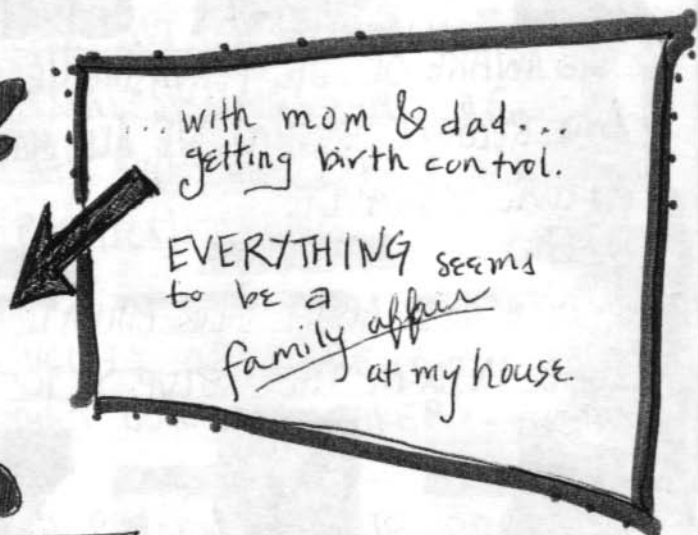 ... with mom & dad...
getting birth control.
EVERYTHING seems
to be a
family affair
at my house.